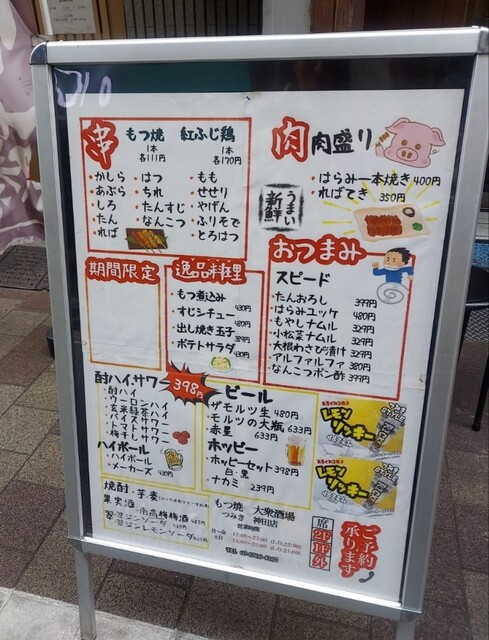 串
もつ焼 紅ふじ鶏
1本 1本
各111円 各170円
・かしら ・はつ ・もも
・あぶら ・ちれ ・せせり
・しろ ・たんすじ ・やげん
・たん ・なんこつ ・ふりそで
・れば ・とろはつ
肉 肉盛り
・はらみ一本焼き 400円
・ればてき 350円
うまい
新鮮
期間限定
逸品料理
・もつ煮込み 430円
・すじシチュー 480円
・出し焼き玉子 389円
・ポテトサラダ 430円
おつまみ
スピード
・たんおろし 399円
・はらみユッケ 480円
・もやしナムル 329円
・小松菜ナムル 329円
・大根わさび漬け 329円
・アルファルファ 380円
・なんこつポン酢 399円
酎ハイ、サワー 398円
・酎ハイ
・ウーロンハイ
・玄米緑茶ハイ
・バイスサワー
・トマトサワー
・梅干しサワー
ハイボール
・ハイボール
・メーカーズ 430円
ビール
・ザモルツ生 480円
・モルツの大瓶 633円
・赤星 633円
ホッピー
・ホッピーセット 398円
白・黒
・ナカミ 239円
レモン
リッキー
レモン
リッキー
焼酎・芋麦
果実酒・南高梅梅酒
ジンソーダ
ジンレモンソーダ
もつ焼 大衆酒場
つみき 神田店
営業時間
席
2F
1F
外
ご予約
承ります